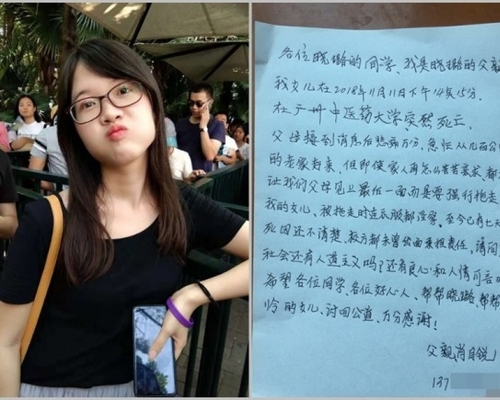 各位晓璐的同学、我是晓璐的父亲
我女儿在2018年11月11日下午14点15分.
在广州中医药大学突然死亡.
父母接到消息后悲痛万分、急忙从几百公
的老家赶来,但即使家人再怎么苦苦哀求,都
让我们父母见上最后一面而是要强行拖走
我的女儿、被拖走时连衣服都没穿、至今已有七
死因还不清楚、校方都未曾出面来担责任,请问
社会还有人道主义吗?还有良心和人情可言
希望各位同学、各位好心人、帮帮晓璐、帮帮
怜的女儿、讨回公道、万分感谢!
父亲肖自锐
137